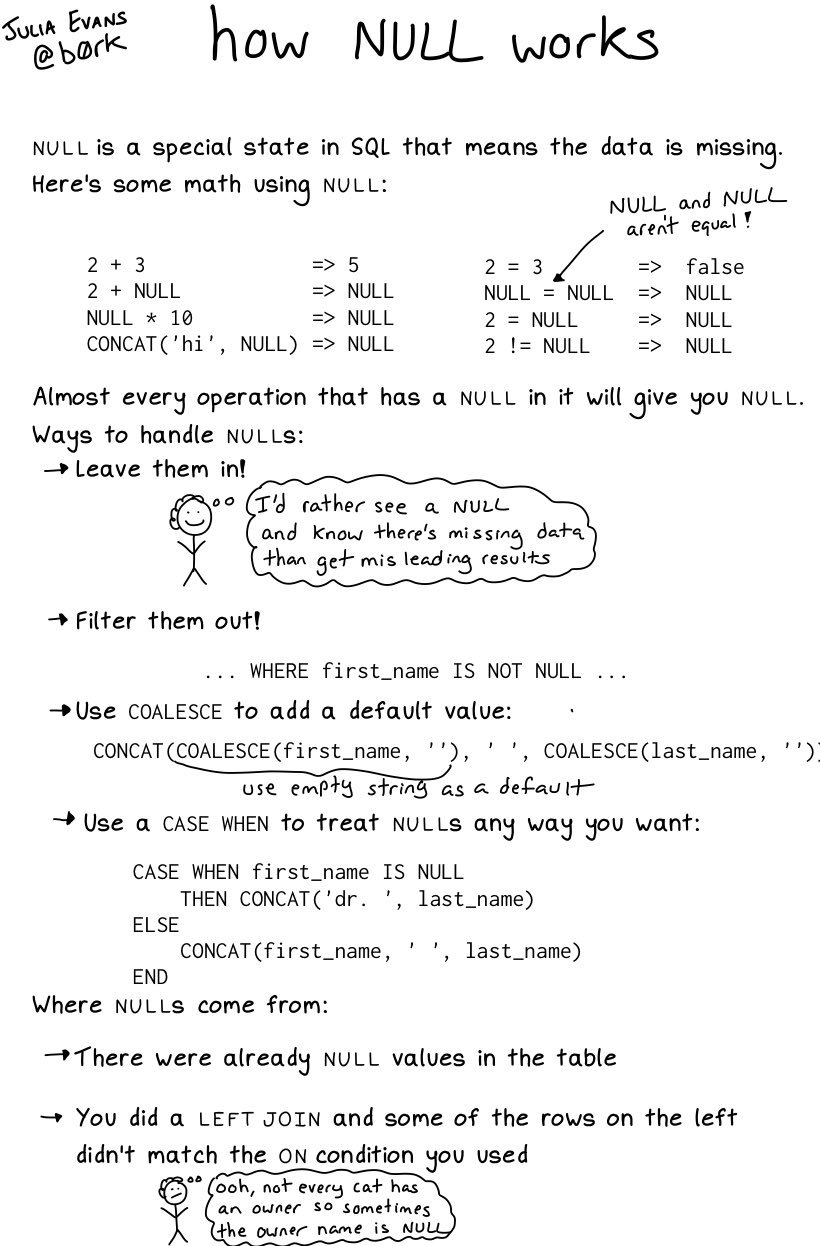 JULIA EVANS
@b0rk
how NULL works
NULL is a special state in SQL that means the data is missing.
Here's some math using NULL:
NULL and NULL
aren't equal!
2 + 3 => 5
2 + NULL => NULL
NULL * 10 => NULL
CONCAT('hi', NULL) => NULL
2 = 3 => false
NULL = NULL => NULL
2 = NULL => NULL
2 != NULL => NULL
Almost every operation that has a NULL in it will give you NULL.
Ways to handle NULLs:
→ Leave them in!
I'd rather see a NULL
and know there's missing data
than get misleading results
→ Filter them out!
... WHERE first_name IS NOT NULL ...
→ Use COALESCE to add a default value:
CONCAT(COALESCE(first_name, ''), ' ', COALESCE(last_name, ''))
use empty string as a default
→ Use a CASE WHEN to treat NULLs any way you want:
CASE WHEN first_name IS NULL
THEN CONCAT('dr. ', last_name)
ELSE
CONCAT(first_name, ' ', last_name)
END
Where NULLs come from:
→ There were already NULL values in the table
→ You did a LEFT JOIN and some of the rows on the left
didn't match the ON condition you used
ooh, not every cat has
an owner so sometimes
the owner name is NULL